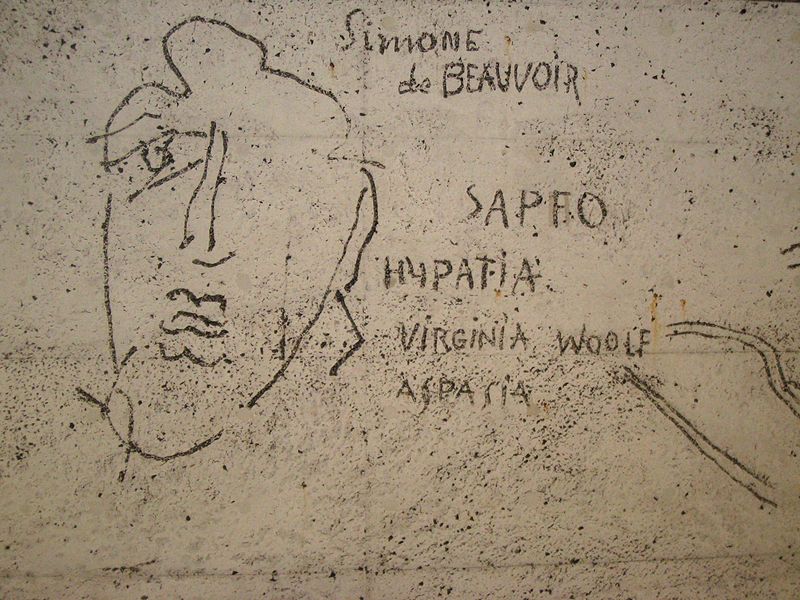 Simone
de BEAUVOIR
SAPFO
HYPATIA
VIRGINIA WOOLF
ASPASIA